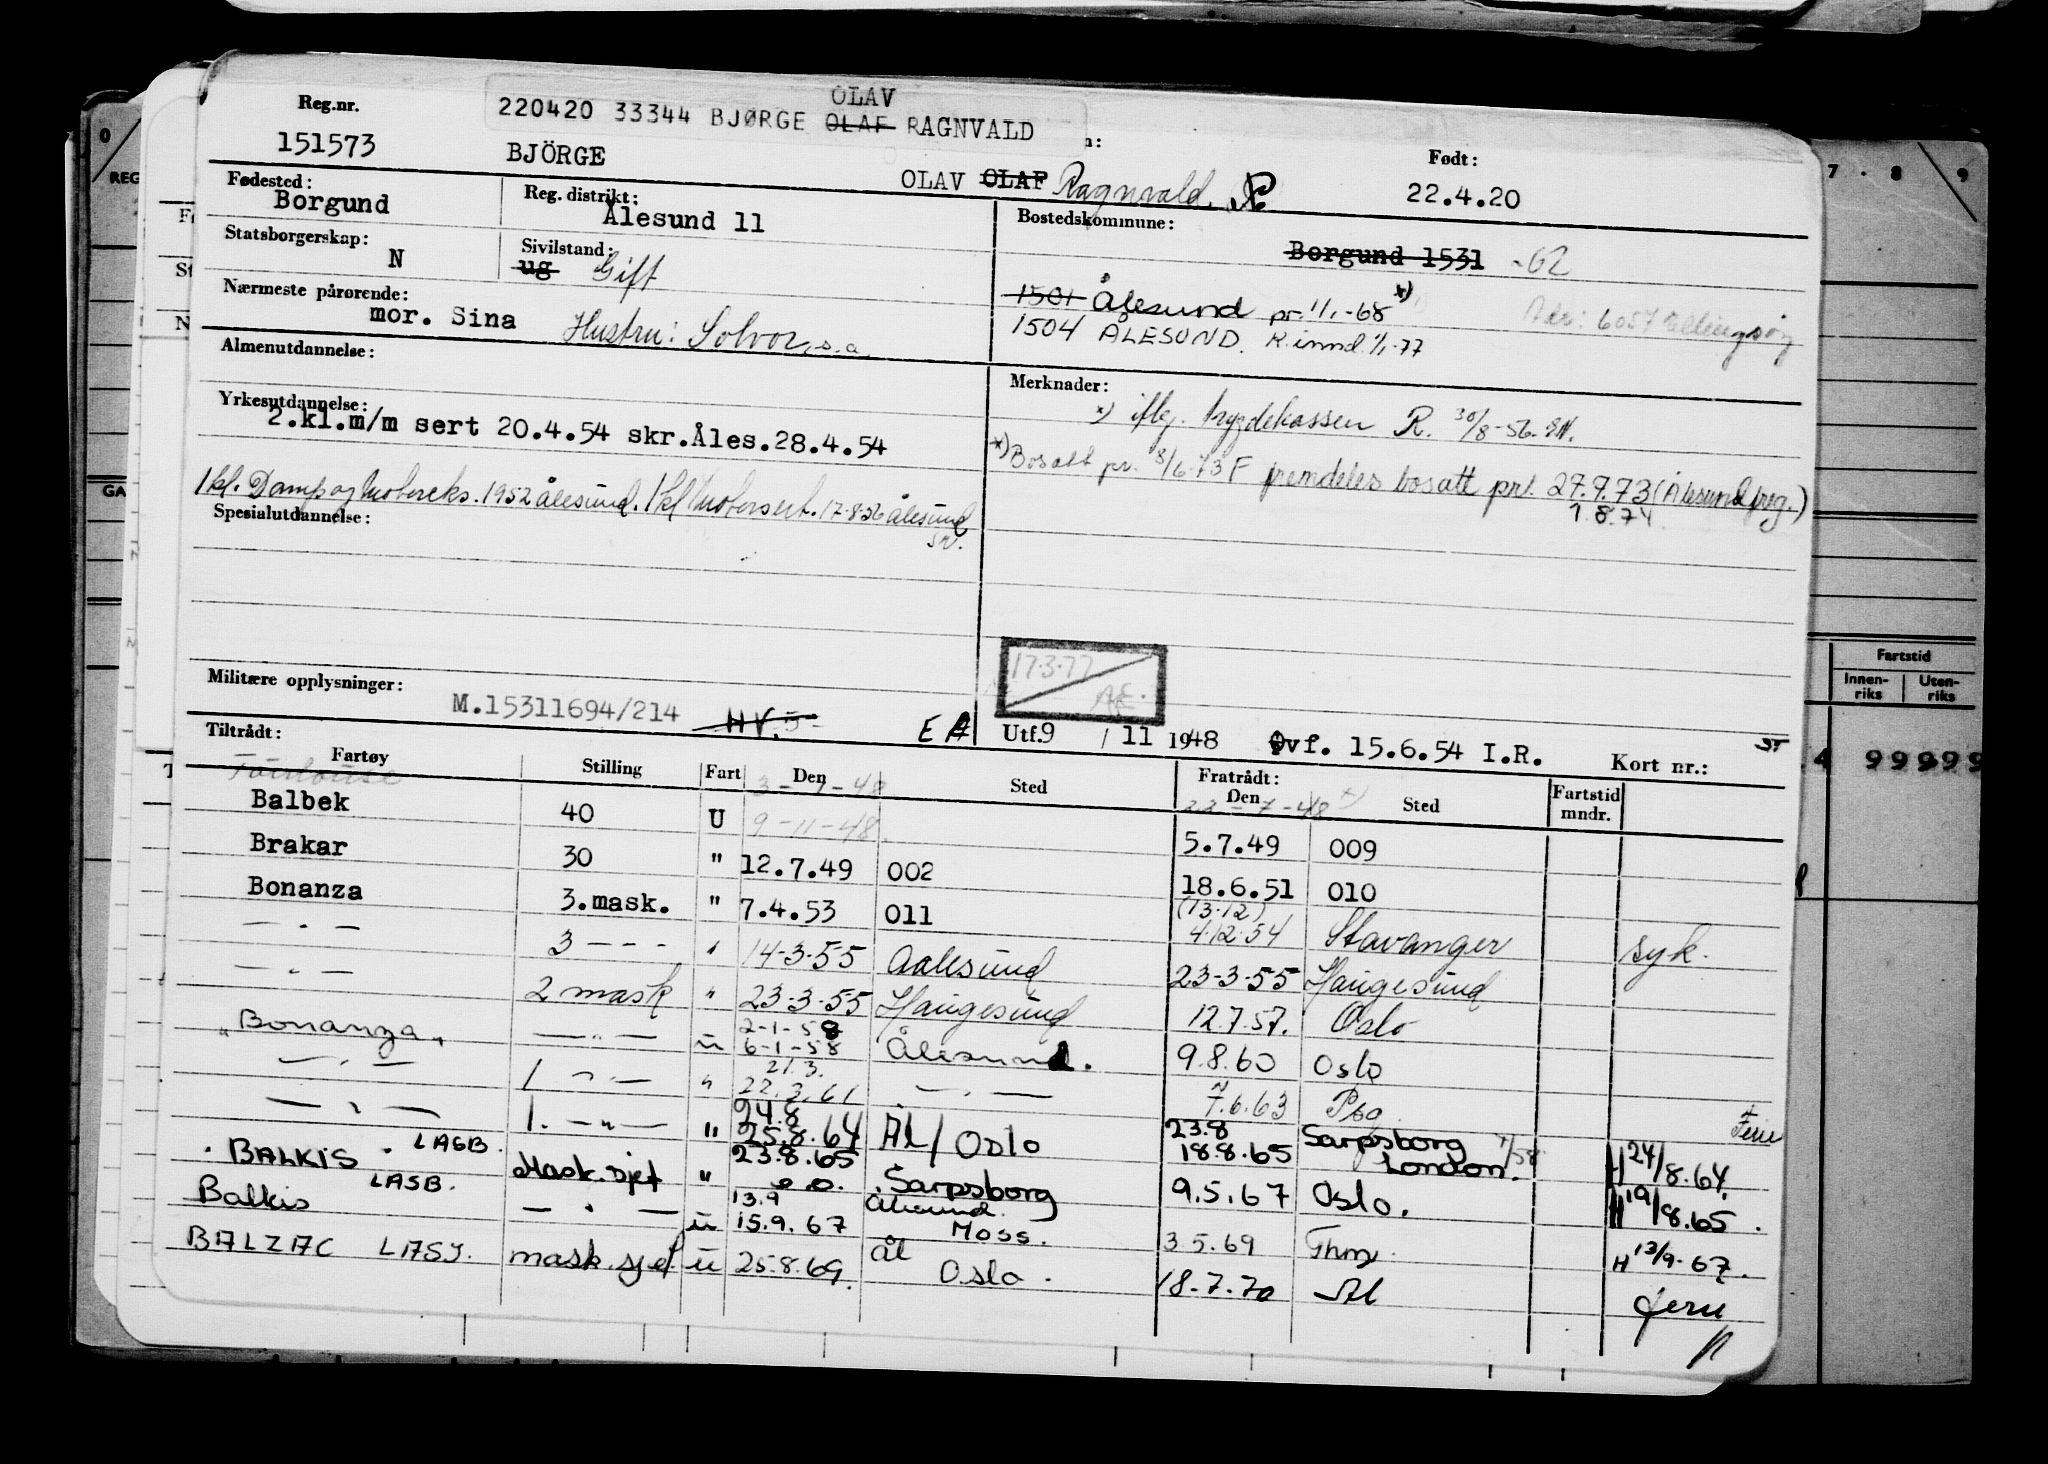 OLAV
220420 33344 BJØRGE OLAF RAGNVALD
Reg.nr.
151573 BJÖRGE OLAV OLAF Ragnvald. Født: 22.4.20
Fødested: Borgund
Reg. distrikt: Ålesund 11
Bostedskommune:
Borgund 1531 -62
Statsborgerskap: N
Sivilstand: ug Gift
1501 Ålesund pr. 1/1.-68 x)
Adr: 6057 Ellingsøy
1504 ÅLESUND. K.innd. 1/1-77
Nærmeste pårørende: mor. Sina Hustru: Solvor, s.a.
Almenutdannelse:
Merknader:
x) iflg. trygdekassen R. 30/8-56.
x) Bosatt pr. 8/6.73 F fremdeles bosatt pr. 27.9.73 (Ålesund freg.)
1.8.74
Yrkesutdannelse:
2.kl.m/m sert 20.4.54 skr.Åles.28.4.54
1 kl. Damp og Motoreks. 1952 Ålesund. 1 kl Motorsert. 17-8-56 Ålesund
Spesialutdannelse:
17.3.77
Militære opplysninger: M.15311694/214 HV.5 E A
Utf. 9 / 11 1948 Ovf. 15.6.54 I.R. Kort nr.:
Tiltrådt: Fratrådt:
Fartøy Stilling Fart Den Sted Den Sted Fartstid mndr.
Toulouse 3-7-48 22-7-48 x)
Balbek 40 U 9-11-48. 5.7.49 009
Brakar 30 " 12.7.49 002 18.6.51 010
Bonanza 3.mask. " 7.4.53 011 (13.12) 4.12.54 Stavanger syk.
— " — 3 - - - " 14-3-55 Aalesund 23-3-55 Haugesund
— " — 2 mask " 23-3-55 Haugesund 12.7.57. Oslo
"Bonanza" — " — u 2-1-58 6-1-58 Ålesund. 9.8.60 Oslo
— " — 1 — " — " 21.3. 22.3.61 — " — 7.6.63 Psg. Ferie
— " — 1. — " — " 24.8 25.8.64 Ål/Oslo 23.8 18.8.65 Sarpsborg London. H 24/8.64.
"BALKIS" LAGB. Mask.sjef " 23.8.65 Sarpsborg 9.5.67 Oslo. H 19/8.65.
Balkis LASB. — " — u 13.9 15.9.67 Ålesund. Moss. 3.5.69 H 13/9-67.
BALZAC LASJ. mask.sjef u 25.8.69. Ål Oslo. 18.7.70 Ål ferie
REG
GA
7 . 8 9
Fartstid
Innen-riks Uten-riks
4 9 9 9 9 9